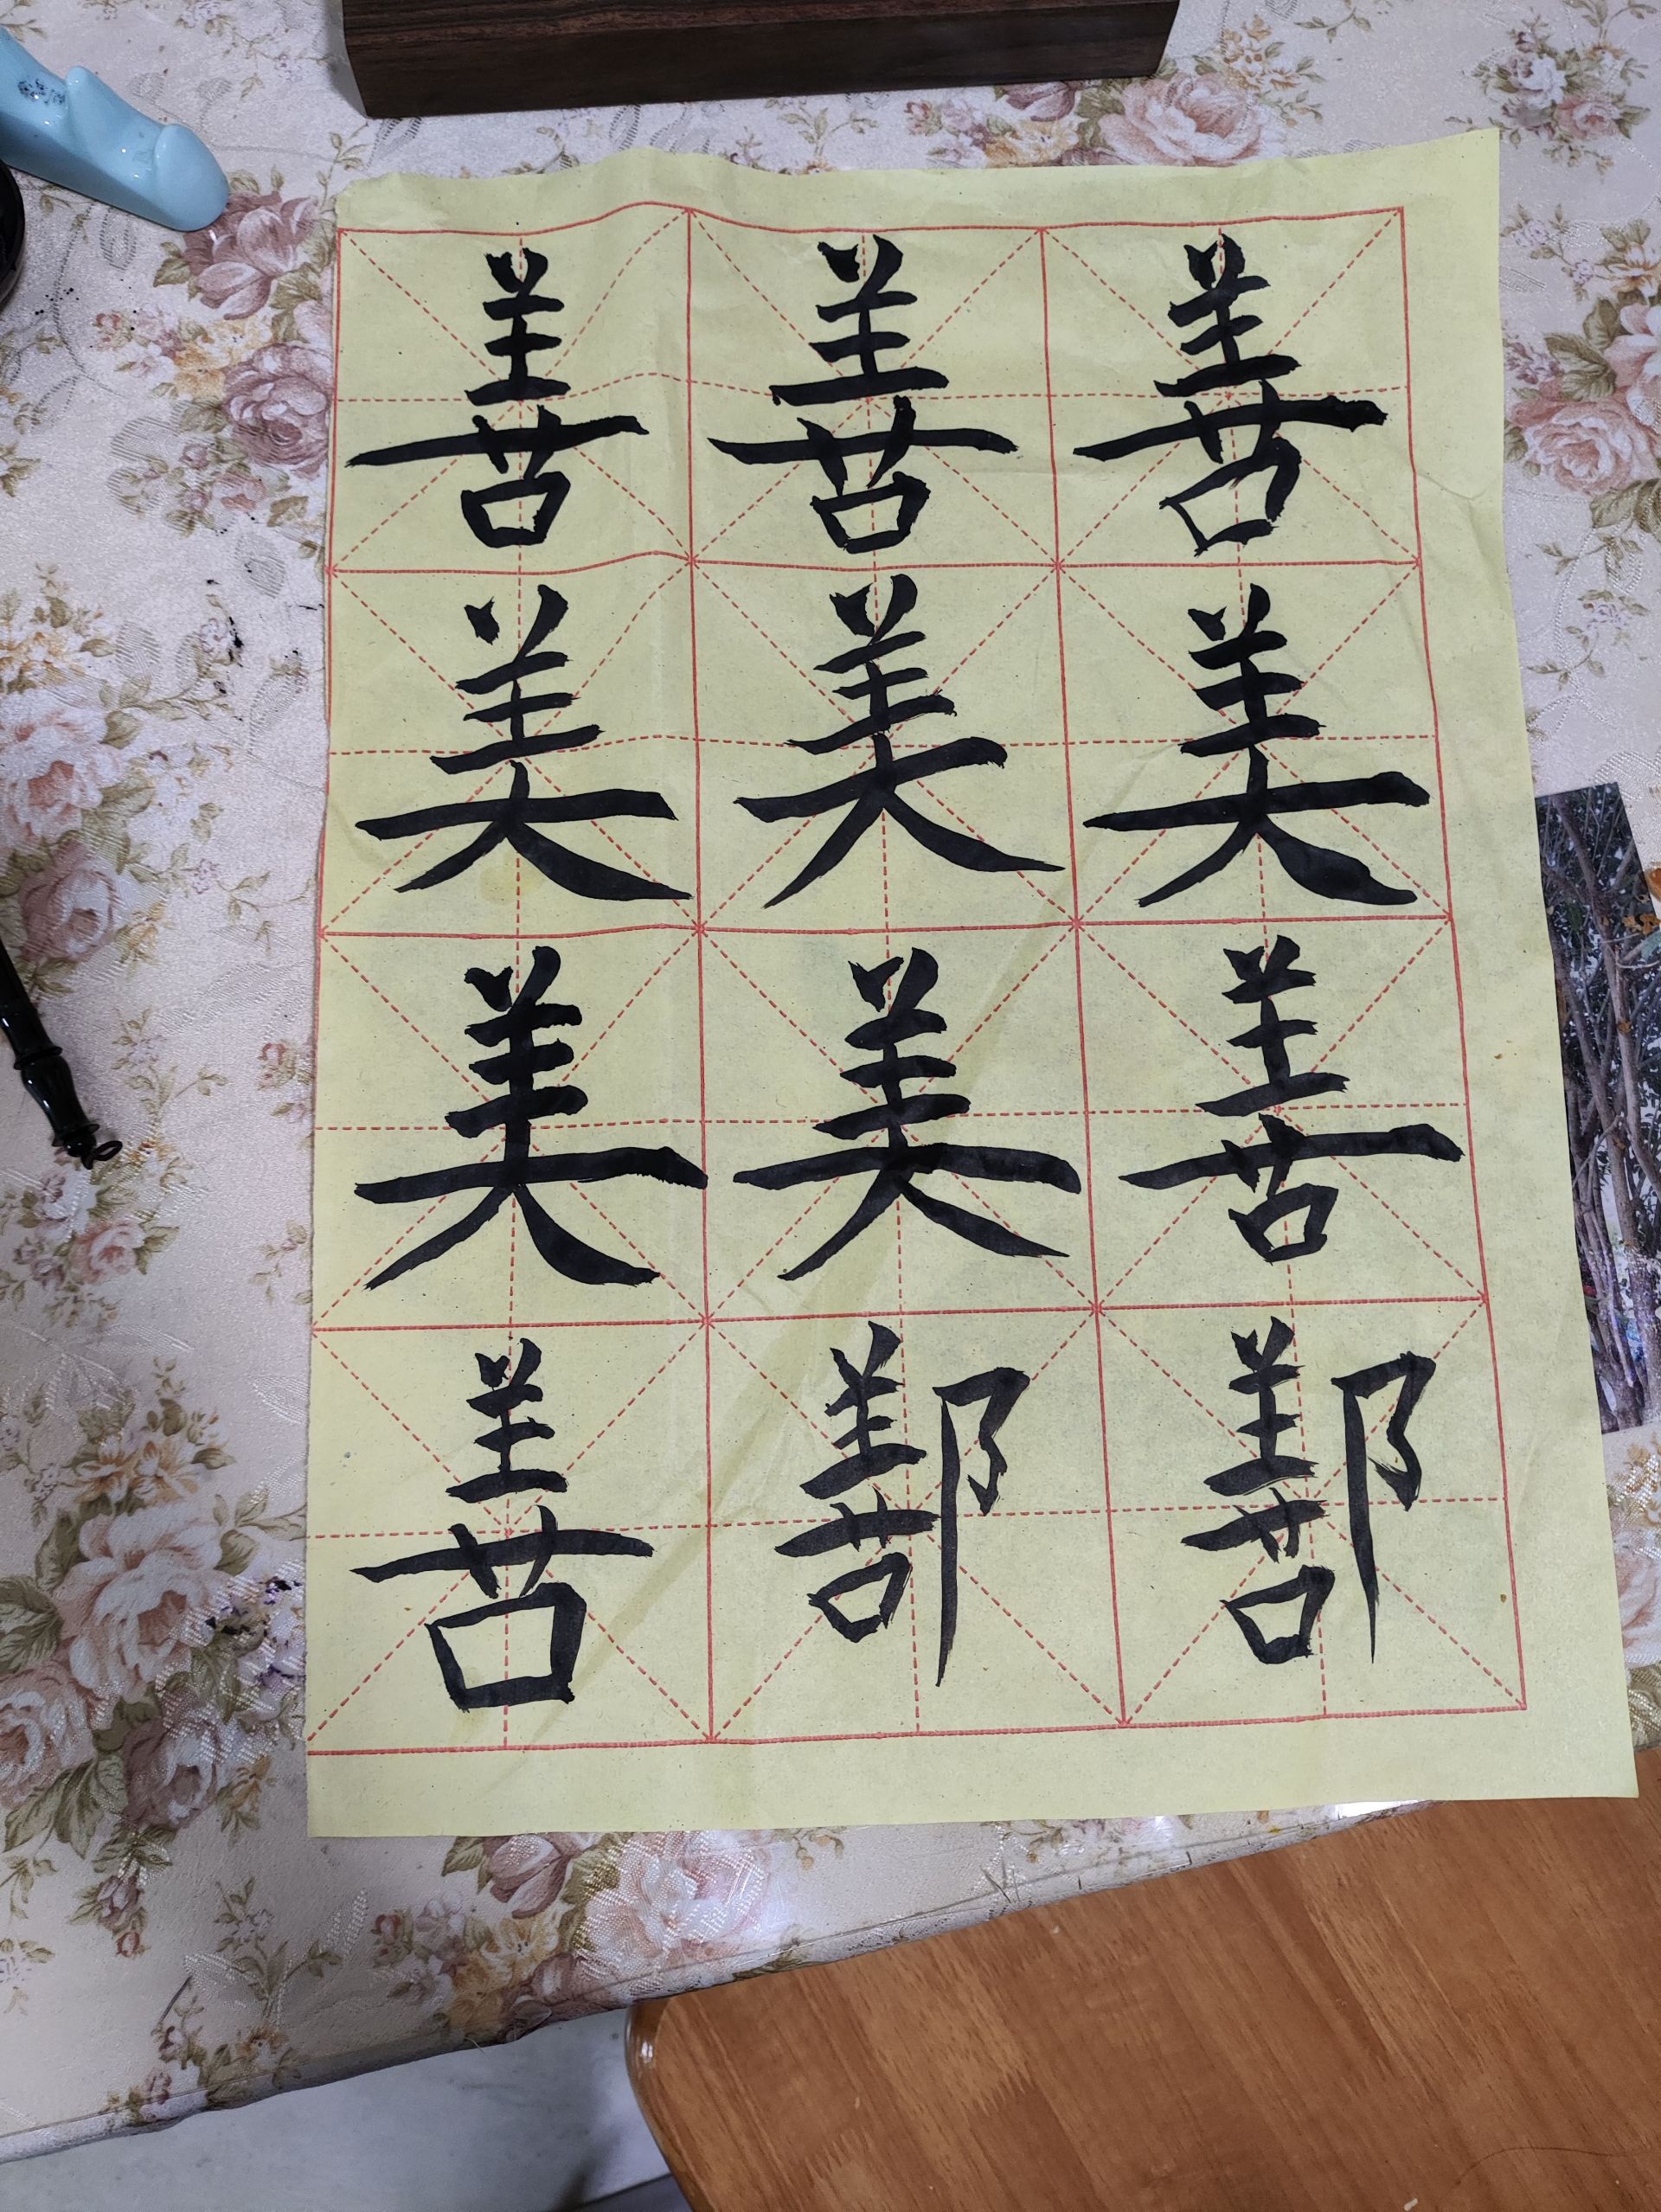 善善善
美美美
美美善
善鄯鄯